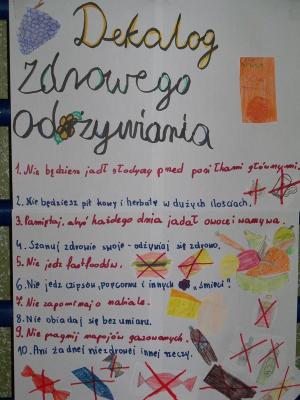 Dekalog
zdrowego
odżywiania
1. Nie będziesz jadł słodyczy przed posiłkami głównymi.
2. Nie będziesz pił kawy i herbaty w dużych ilościach.
3. Pamiętaj, abyś każdego dnia jadał owoce i warzywa.
4. Szanuj zdrowie swoje - odżywiaj się zdrowo.
5. Nie jedz fastfoodów.
6. Nie jedz czipsów, popcornu i innych "śmieci".
7. Nie zapominaj o nabiale.
8. Nie obiadaj się bez umiaru.
9. Nie pragnij napojów gazowanych.
10. Ani żadnej niezdrowej innej rzeczy.